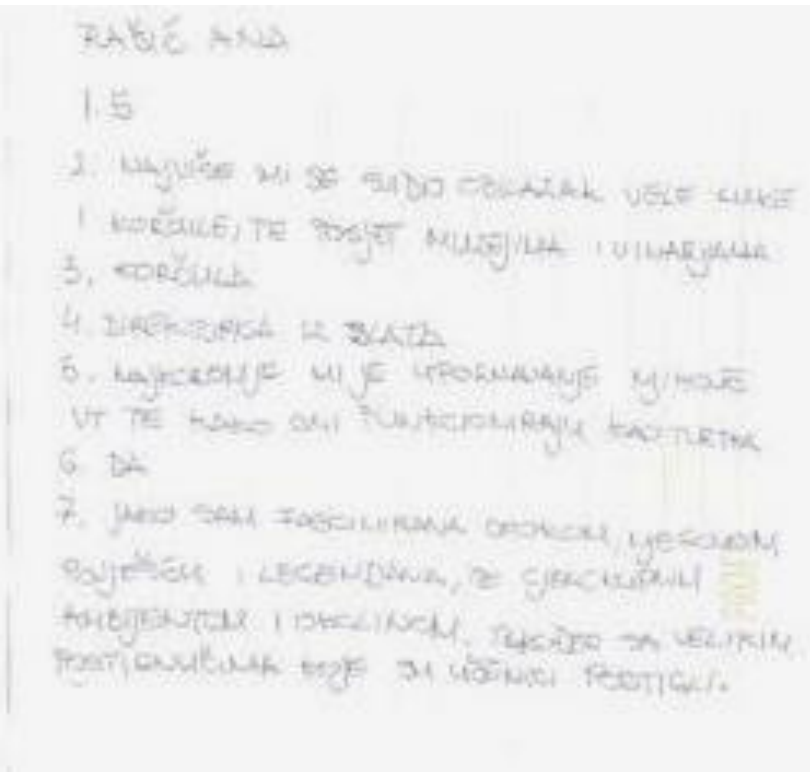 ANA
1.5
2. NAJVIŠE MI SE SVIDIO OBILAZAK VELE LUKE
I KORČULE, TE POSJET MUZEJIMA I VINARIJAMA
3. KORČULA
4. DIREKTORICA IZ BLATA
5. MI JE UPOZNAVANJE NJIHOVE
VT TE KAKO ONI FUNKCIONIRAJU KAO TVRTKA
6. DA
7. JAKO SAM FASCINIRANA OTOKOM,
I LEGENDAMA, TE
AMBIJENTOM I TAKOĐER SA VELIKIM
POSTIGNUĆIMA KOJE SU UČENICI POSTIGLI.